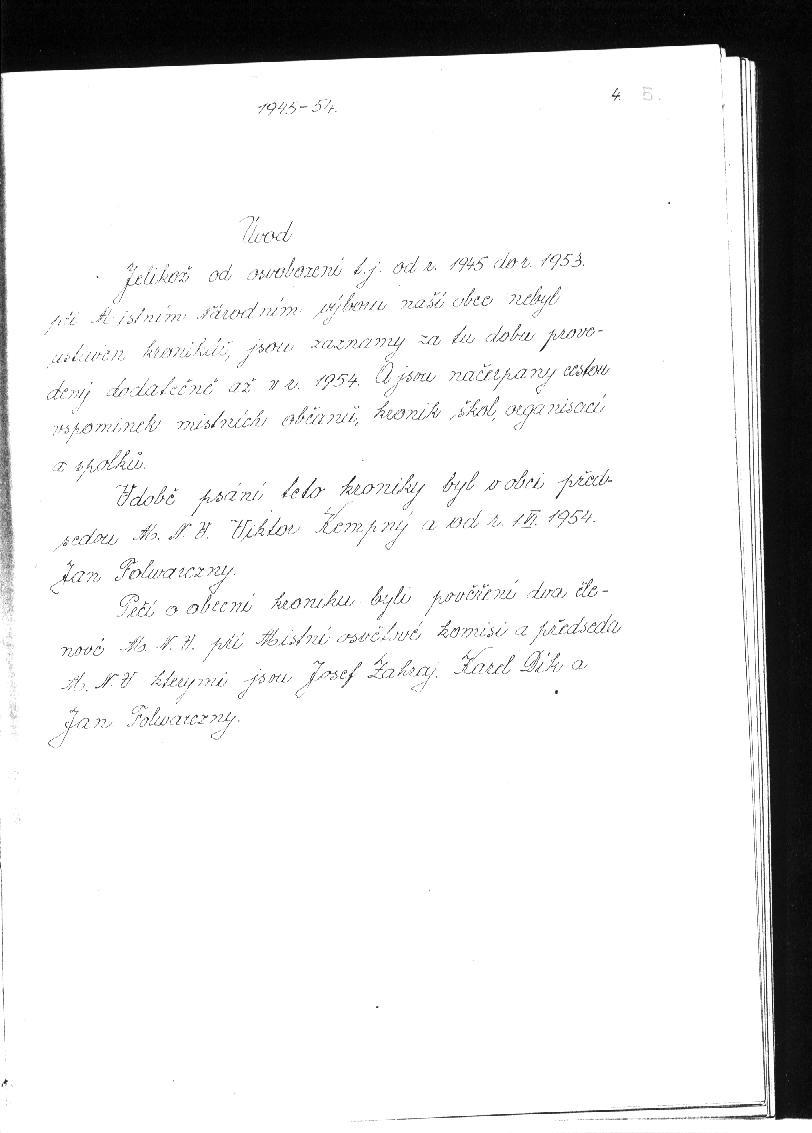 1945-54.
4. 5.
Úvod
Jelikož od osvobození t.j. od r. 1945 do r. 1953.
při Místním Národním výboru naší obce nebyl
ustaven kronikář, jsou záznamy za tu dobu prove-
deny dodatečně až v r. 1954. A jsou načerpany cestou
vspomínek místních občanů, kronik škol, organisací
a spolků.
V době psaní teto kroniky byl v obci před-
sedou M. N. V. Viktor Kempný a od r. 1 VI. 1954.
Jan Folwarczny.
Péčí o obecní kroniku byli pověření dva čle-
nové M. N. V. při Místní osvětové komisi a předseda
M. N. V kterými jsou Josef Zahraj. Karel Dik a
Jan Folwarczny.